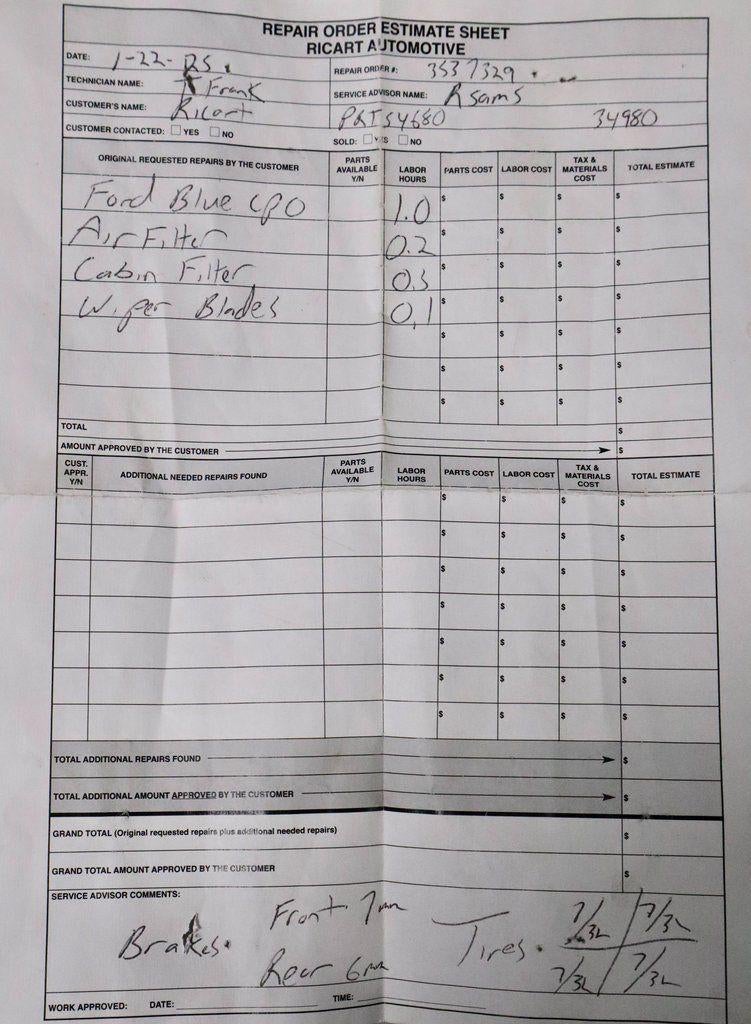 REPAIR ORDER ESTIMATE SHEET
RICART AUTOMOTIVE
DATE: 1-22-25. REPAIR ORDER #: 3537329
TECHNICIAN NAME: T Frank SERVICE ADVISOR NAME: R Sams
CUSTOMER'S NAME: Ricart PRTS4680 34980
CUSTOMER CONTACTED: YES NO SOLD: YES NO
ORIGINAL REQUESTED REPAIRS BY THE CUSTOMER PARTS AVAILABLE Y/N LABOR HOURS PARTS COST LABOR COST TAX & MATERIALS COST TOTAL ESTIMATE
Ford Blue CPO 1.0 $ $ $ $
Air Filter 0.2 $ $ $ $
Cabin Filter 0.3 $ $ $ $
Wiper Blades 0.1 $ $ $ $
$ $ $ $
$ $ $ $
$ $ $ $
TOTAL $
AMOUNT APPROVED BY THE CUSTOMER $
CUST. APPR. Y/N ADDITIONAL NEEDED REPAIRS FOUND PARTS AVAILABLE Y/N LABOR HOURS PARTS COST LABOR COST TAX & MATERIALS COST TOTAL ESTIMATE
$ $ $ $
$ $ $ $
$ $ $ $
$ $ $ $
$ $ $ $
$ $ $ $
$ $ $ $
TOTAL ADDITIONAL REPAIRS FOUND $
TOTAL ADDITIONAL AMOUNT APPROVED BY THE CUSTOMER $
GRAND TOTAL (Original requested repairs plus additional needed repairs) $
GRAND TOTAL AMOUNT APPROVED BY THE CUSTOMER $
SERVICE ADVISOR COMMENTS:
Brakes. Front 7mm Tires. 7/32 7/32
Rear 6mm 7/32 7/32
WORK APPROVED: DATE: TIME: